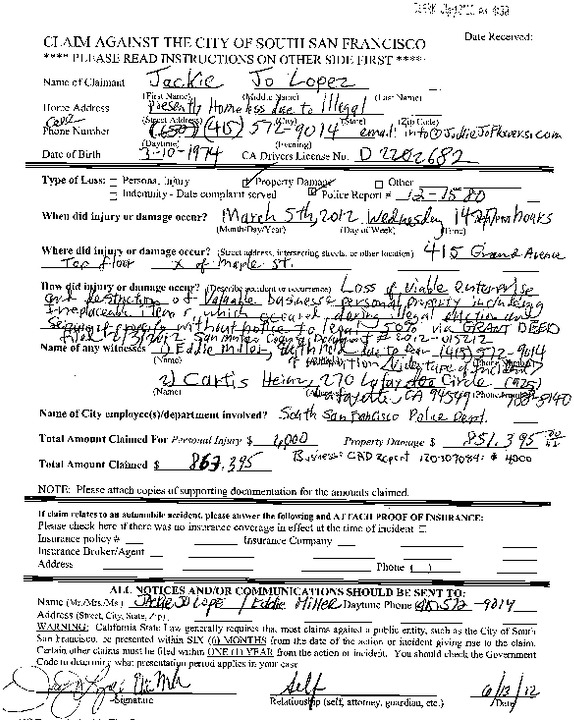 Date Received:
CLAIM AGAINST THE CITY OF SOUTH SAN FRANCISCO
**** PLEASE READ INSTRUCTIONS ON OTHER SIDE FIRST ****
Name of Claimant Jackie Jo Lopez
(First Name) (Middle Name) (Last Name)
Home Address Presently Homeless due to Illegal
(Street Address) (City) (State) (Zip Code)
Phone Number (415) 572-9014 email:
(Daytime) (Evening)
Date of Birth 3-10-1974 CA Drivers License No. D 2202682
Type of Loss: Personal Injury Property Damage Other
Indemnity - Date complaint served Police Report # 12-1580
When did injury or damage occur? March 5th, 2012 Wednesday hours
(Month/Day/Year) (Day of Week) (Time)
Where did injury or damage occur? (Street address, intersecting streets, or other location) 415 Grand Avenue
Top floor X of Maple St.
How did injury or damage occur? (Describe accident or occurrence) Loss of viable enterprise
and destruction of valuable business personal property including
irreplaceable items, which occured during illegal eviction and
without notice to legal 50% via GRANT DEED
filed 2/3/2012 San Mateo County Document # 2012-015212
Name of any witnesses 1) Eddie Miller, held due to fear (415) 572-9014
(Name) of retribution Videotape of Incident
2) Curtis Heinz, 270 Lafayette Circle (925)
(Name) Lafayette, CA 94549
Name of City employee(s)/department involved? South San Francisco Police Dept.
Total Amount Claimed For Personal Injury $ Property Damage $ 851,395
Total Amount Claimed $ 867,395 Business: CAD Report : $ 4000
NOTE: Please attach copies of supporting documentation for the amounts claimed.
If claim relates to an automobile accident, please answer the following and ATTACH PROOF OF INSURANCE:
Please check here if there was no insurance coverage in effect at the time of incident
Insurance policy # Insurance Company
Insurance Broker/Agent
Address Phone ( )
ALL NOTICES AND/OR COMMUNICATIONS SHOULD BE SENT TO:
Name (Mr./Mrs./Ms.) Jackie Jo Lopez / Eddie Miller Daytime Phone (415) 572-9014
Address (Street, City, State, Zip)
WARNING: California State Law generally requires that most claims against a public entity, such as the City of South
San Francisco, be presented within SIX (6) MONTHS from the date of the action or incident giving rise to the claim.
Certain other claims must be filed within ONE (1) YEAR from the action or incident. You should check the Government
Code to determine what presentation period applies in your case
Self 6/13/12
Signature Relationship (self, attorney, guardian, etc.) Date